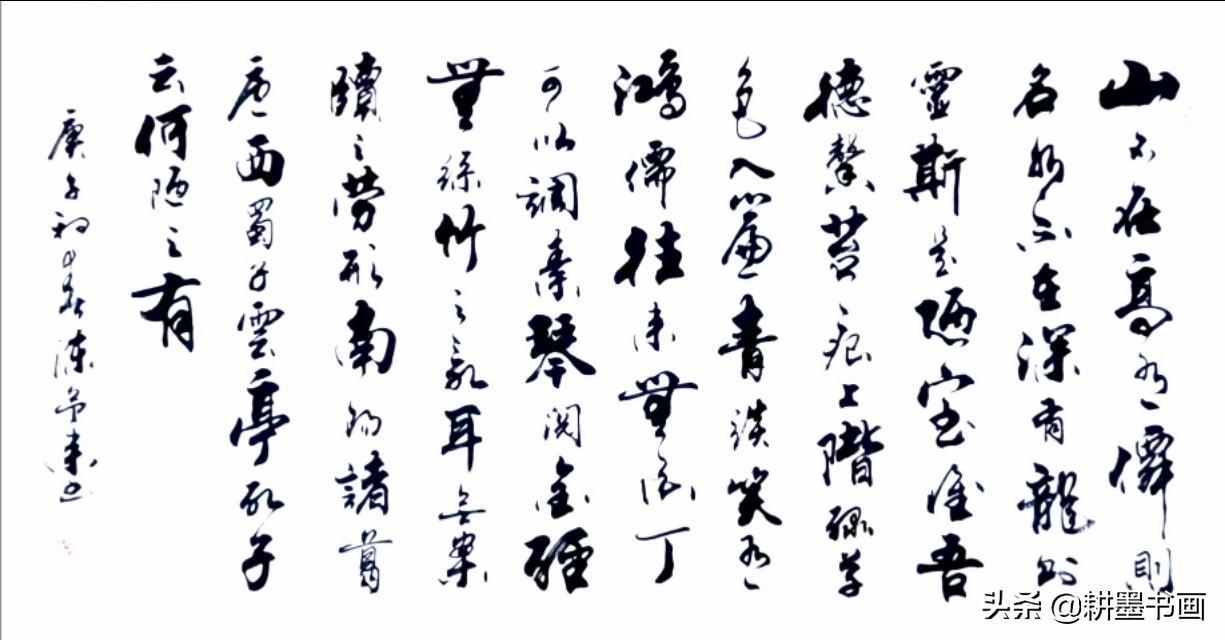 山不在高有僊則
名水不在深有龍則
靈斯是陋室惟吾
德馨苔痕上階綠草
色入簾青談笑有
鴻儒往來無白丁
可以調素琴閱金經
無絲竹之亂耳无案
牘之勞形南陽諸葛
廬西蜀子雲亭孔子
云何陋之有
庚子初春陳
头条 @耕墨书画